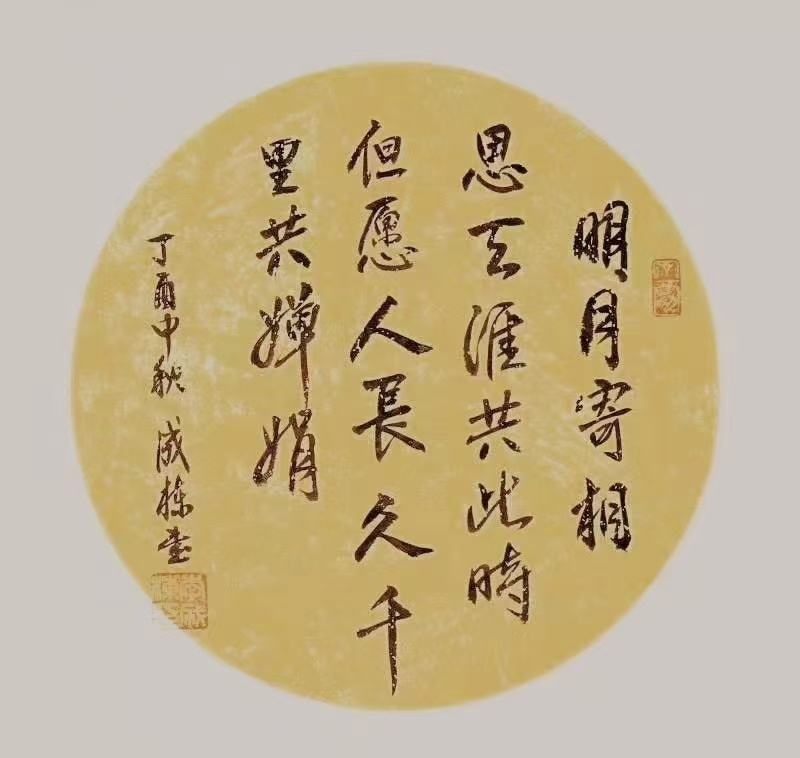 明月寄相
思天涯共此時
但愿人長久千
里共婵娟
丁酉中秋 成栋书